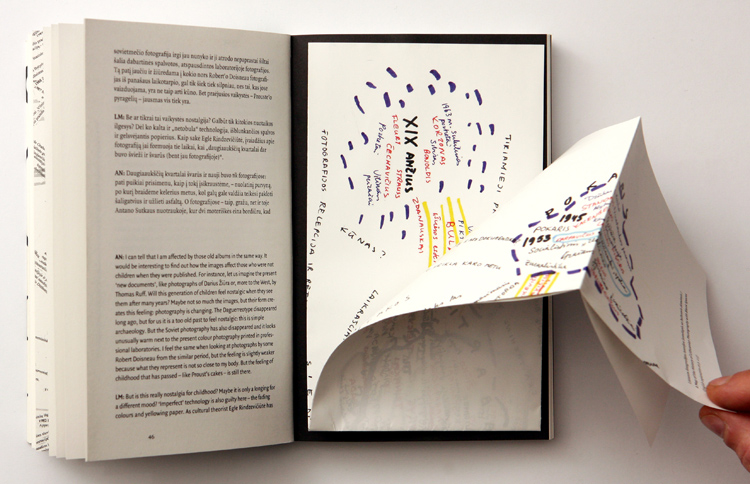 sovietmečio fotografija irgi jau nunyko ir ji atrodo nepaprastai šiltai
šalia dabartinės spalvotos, atspausdintos laboratorijoje fotografijos.
Tą patį jaučiu ir žiūrėdama į kokio nors Robert'o Doisneau fotografi-
jas iš panašaus laikotarpio, gal tik šiek tiek silpniau, nes tai, kas jose
vaizduojama, yra ne taip arti kūno. Bet praėjusios vaikystės – Proust'o
pyragėlių – jausmas vis tiek yra.
LM: Be ar tikrai tai vaikystės nostalgija? Galbūt tik kitokios nuotaikos
ilgesys? Dėl ko kalta ir „netobula" technologija, išblunkančios spalvos
ir gelsvėjantis popierius. Kaip sakė Eglė Rindzevičiūtė,
fotografiją jai formavęs tie laikai, kai „daugiaaukščių kvartalai dar
buvo šviesūs ir švarūs (bent jau fotografijose)".
AN: Daugiaaukščių kvartalai švarūs ir nauji buvo tik fotografijose:
pati puikiai prisimenu, kaip į tokį įsikraustėme, – nuolatinį purvyną,
po kurį braidėme kelerius metus, kol galų gale valdžia teikėsi pakloti
šaligatvius ir užlieti asfaltą. O fotografijose – taip, gražu, net ir toje
Antano Sutkaus nuotraukoje, kur dvi moteriškės eina bordiūru, kad
AN: I can tell that I am affected by those old albums in the same way. It
would be interesting to find out how the images affect those who were not
children when they were published. For instance, let us imagine the present
'new documents', like photographs of Darius Žiūra or, more to the West, by
Thomas Ruff. Will this generation of children feel nostalgic when they see
them after many years? Maybe not so much the images, but their form cre-
ates this feeling: photography is changing. The Daguerreotype disappeared
long ago, but for us it is a too old past to feel nostalgic: this is simple
archaeology. But the Soviet photography has also disappeared and it looks
unusually warm next to the present colour photography printed in profes-
sional laboratories. I feel the same when looking at photographs by some
Robert Doisneau from the similar period, but the feeling is slightly weaker
because what they represent is not so close to my body. But the feeling of
childhood that has passed – like Proust's cakes – is still there.
LM: But is this really nostalgia for childhood? Maybe it is only a longing for
a different mood? 'Imperfect' technology is also guilty here – the fading
colours and yellowing paper. As cultural theorist Eglė Rindzevičiūtė has
46
FOTOGRAFIJOS RECEPCIJA IR
KŪNAS?
LAIKRAŠČIAI
TIRIANIEJI
XIX AMŽIUS
1863 m. sukilimas
KORTONAS
BOJOLDIS
STRAUS
ČECHAVIČIUS
FLEURY
Vilniaus
ZDANAUSKAI
BUL
POKARIS
1945
1953